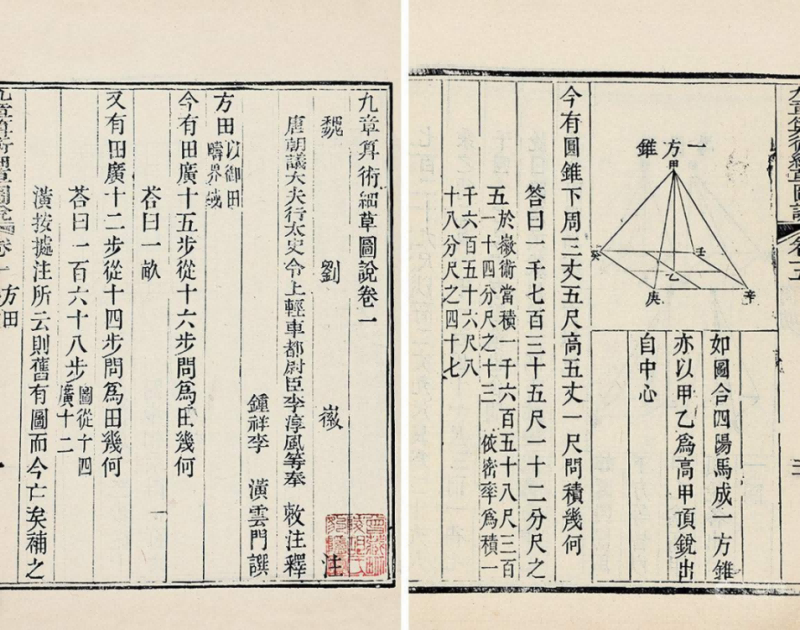 九章算術細草圖說卷一
魏 劉 徽 注
唐朝議大夫行太史令上輕車都尉臣李淳風等奉 敕注釋
鍾祥李 潢雲門譔
方田以御田
疇界域
今有田廣十五步從十六步問爲田幾何
荅曰一畝
又有田廣十二步從十四步問爲田幾何
荅曰一百六十八步圖從十四
廣十二
潢按據注所云則舊有圖而今亡矣補之
九章算術細草圖說 卷一 方田
九章算術細草圖說 卷五
一方錐
甲
癸
壬
乙
庚
辛
如圖合四陽馬成一方錐
亦以甲乙爲高甲頂銳出
自中心
今有圓錐下周三丈五尺高五丈一尺問積幾何
荅曰一千七百三十五尺一十二分尺之
五於徽術當積一千六百五十八尺三百
一十四分尺之十三 依密率爲積一
千六百五十六尺八
十八分尺之四十七